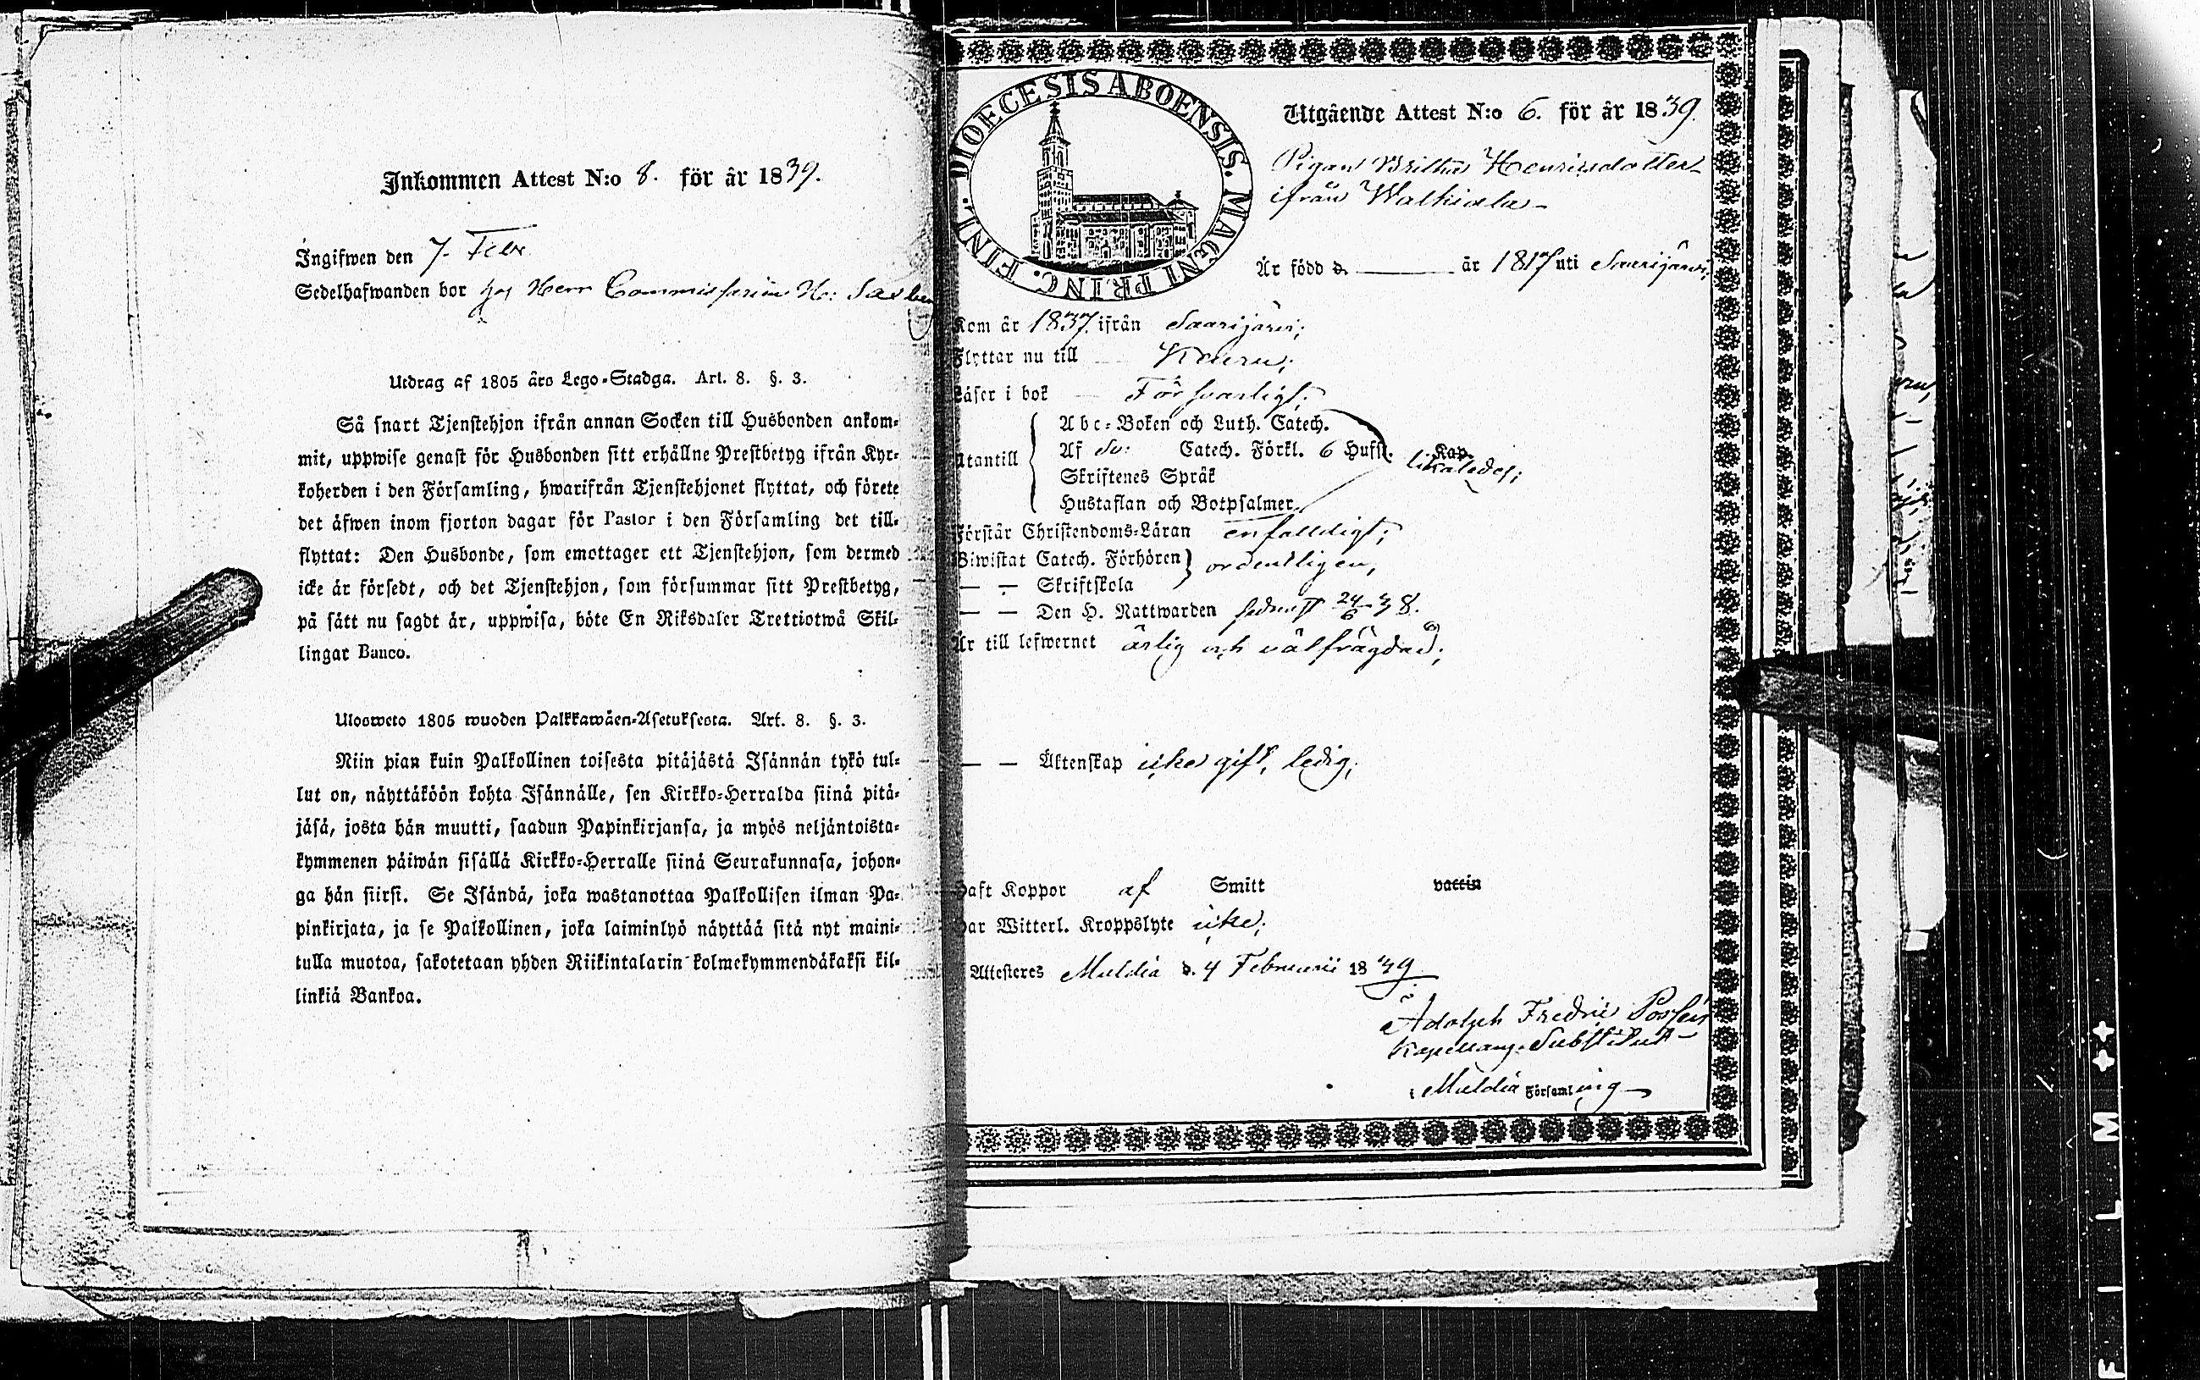 Inkommen Attest N:o 8. för år 1839.
Ingifwen den 7. Febr
Sedelhafwanden bor hos Herr Commissarien
Utdrag af 1805 års Lego-Stadga. Art. 8. §. 3.
Så snart Tjenstehjon ifrån annan Socken till Husbonden ankom-
mit, uppwise genast för Husbonden sitt erhållne Prestbetyg ifrån Kyr-
koherden i den Församling, hwarifrån Tjenstehjonet flyttat, och förete
det äfwen inom fjorton dagar för Pastor i den Församling det till-
flyttat: Den Husbonde, som emottager ett Tjenstehjon, som dermed
icke är försedt, och det Tjenstehjon, som försummar sitt Prestbetyg,
på sätt nu sagdt är, uppwisa, böte En Riksdaler Trettiotwå Skil-
lingar Banco.
Ulosweto 1805 wuoden Palkkawäen-Asetuksesta. Art. 8. §. 3.
Niin pian kuin Palkollinen toisesta pitäjästä Isännän tykö tul-
lut on, näyttäköön kohta Isännälle, sen Kirkko-Herralda siinä pitä-
jäsä, josta hän muutti, saadun Papinkirjansa, ja myös neljäntoista-
kymmenen päiwän sisällä Kirkko-Herralle siinä Seurakunnasa, johon-
ga hän siirsi. Se Isändä, joka wastanottaa Palkollisen ilman Pa-
pinkirjata, ja se Palkollinen, joka laiminlyö näyttää sitä nyt maini-
tulla muotoa, sakotetaan yhden Riikintalarin kolmekymmendäkaksi kil-
linkiä Bankoa.
DIOECESIS ABOENSIS. MAGNI PRINC. FINL.
Utgående Attest N:o 6. för år 1839.
Pigan Britha Henricsdotter
ifrån Walkiala
Är född d. år 1817 uti Saarijärvi;
Kom år 1837. ifrån Saarijärvi;
Flyttar nu till Keuru;
Läser i bok Försvarligt;
Utantill
Abc-Boken och Luth. Catech.
Af Sv: Catech. Förkl. 6 Hufst. Kap.
Skriftenes Språk
Hustaflan och Botpsalmer
likaledes;
Förstår Christendoms-Läran enfalldigt;
Biwistat Catech. Förhören ordentligen,
— — Skriftskola
— — Den H. Nattwarden sednast 24/6 38.
Är till lefwernet ärlig och välfrägdad;
— — Äktenskap icke gift, ledig;
Haft Koppor af Smitt vaccin
Har Witterl. Kroppslyte icke;
Attesteres Muldia d. 4 Februarii 1839
Adolph Fredric
Kapellans-Substitut
i Muldia Församling
FILM ++